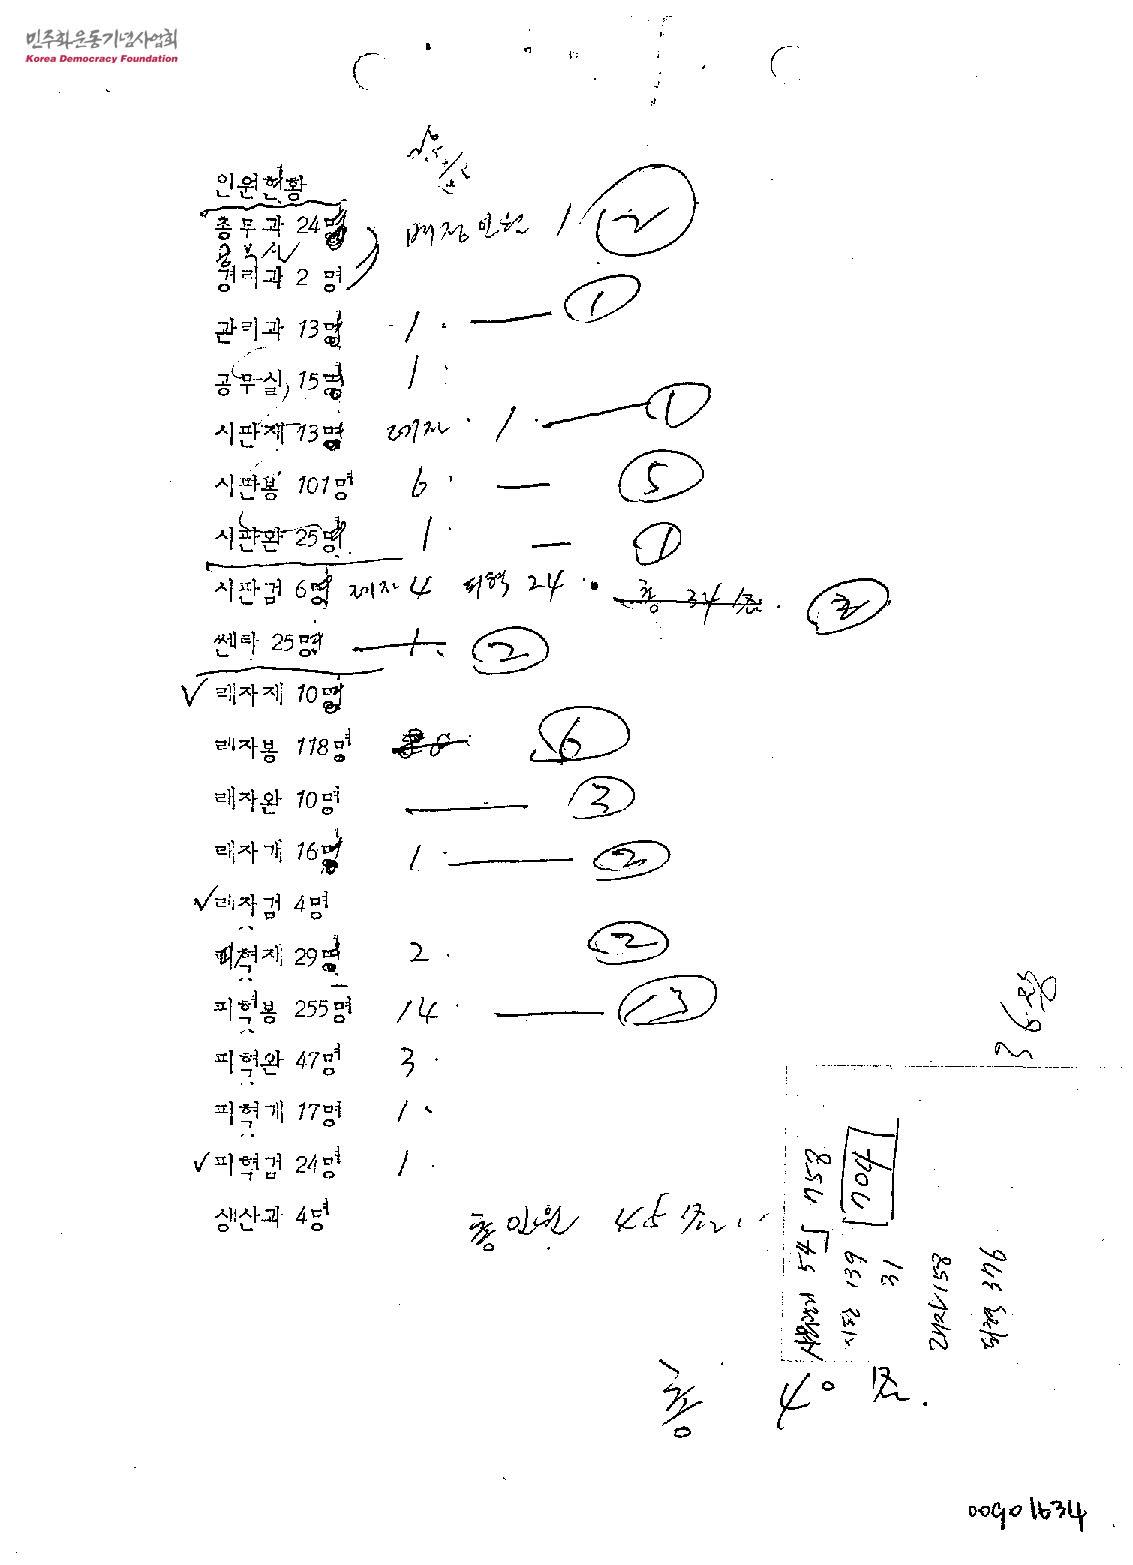 민주화운동기념사업회
Korea Democracy Foundation
인원현황
총무과 24명 배정인원 1 2
경리과 2 명
관리과 13명 1 1
공무실 15명 1
시판재 13명 레자 1 1
시판봉 101명 6 5
시판완 25명 1 1
시판검 6명 레자 4 피혁 24 총 34조 2
쎈타 25명 1 2
레자재 10명
레자봉 118명 6
레자완 10명 3
레자개 16명 1 2
레자검 4명
피혁재 29명 2 2
피혁봉 255명 14 13
피혁완 47명 3
피혁개 17명 1
피혁검 24명 1
생산과 4명
총인원 45조
피혁 376
레자 158
시판 139
31
704
총 40조.
00901634